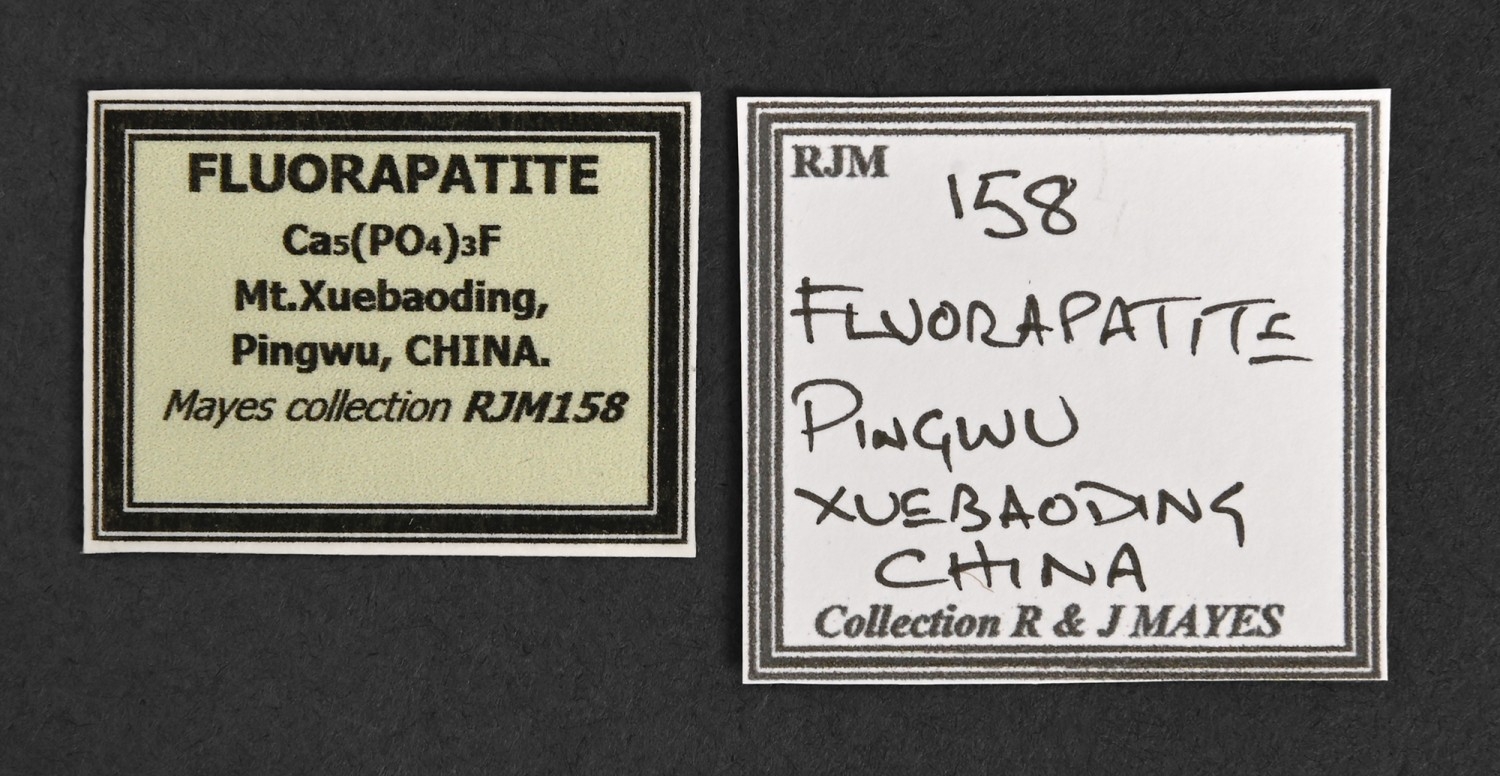 FLUORAPATITE
Ca₅(PO₄)₃F
Mt.Xuebaoding,
Pingwu, CHINA.
Mayes collection RJM158
RJM
'58
FLUORAPATITE
PINGWU
XUEBAODING
CHINA
Collection R & J MAYES